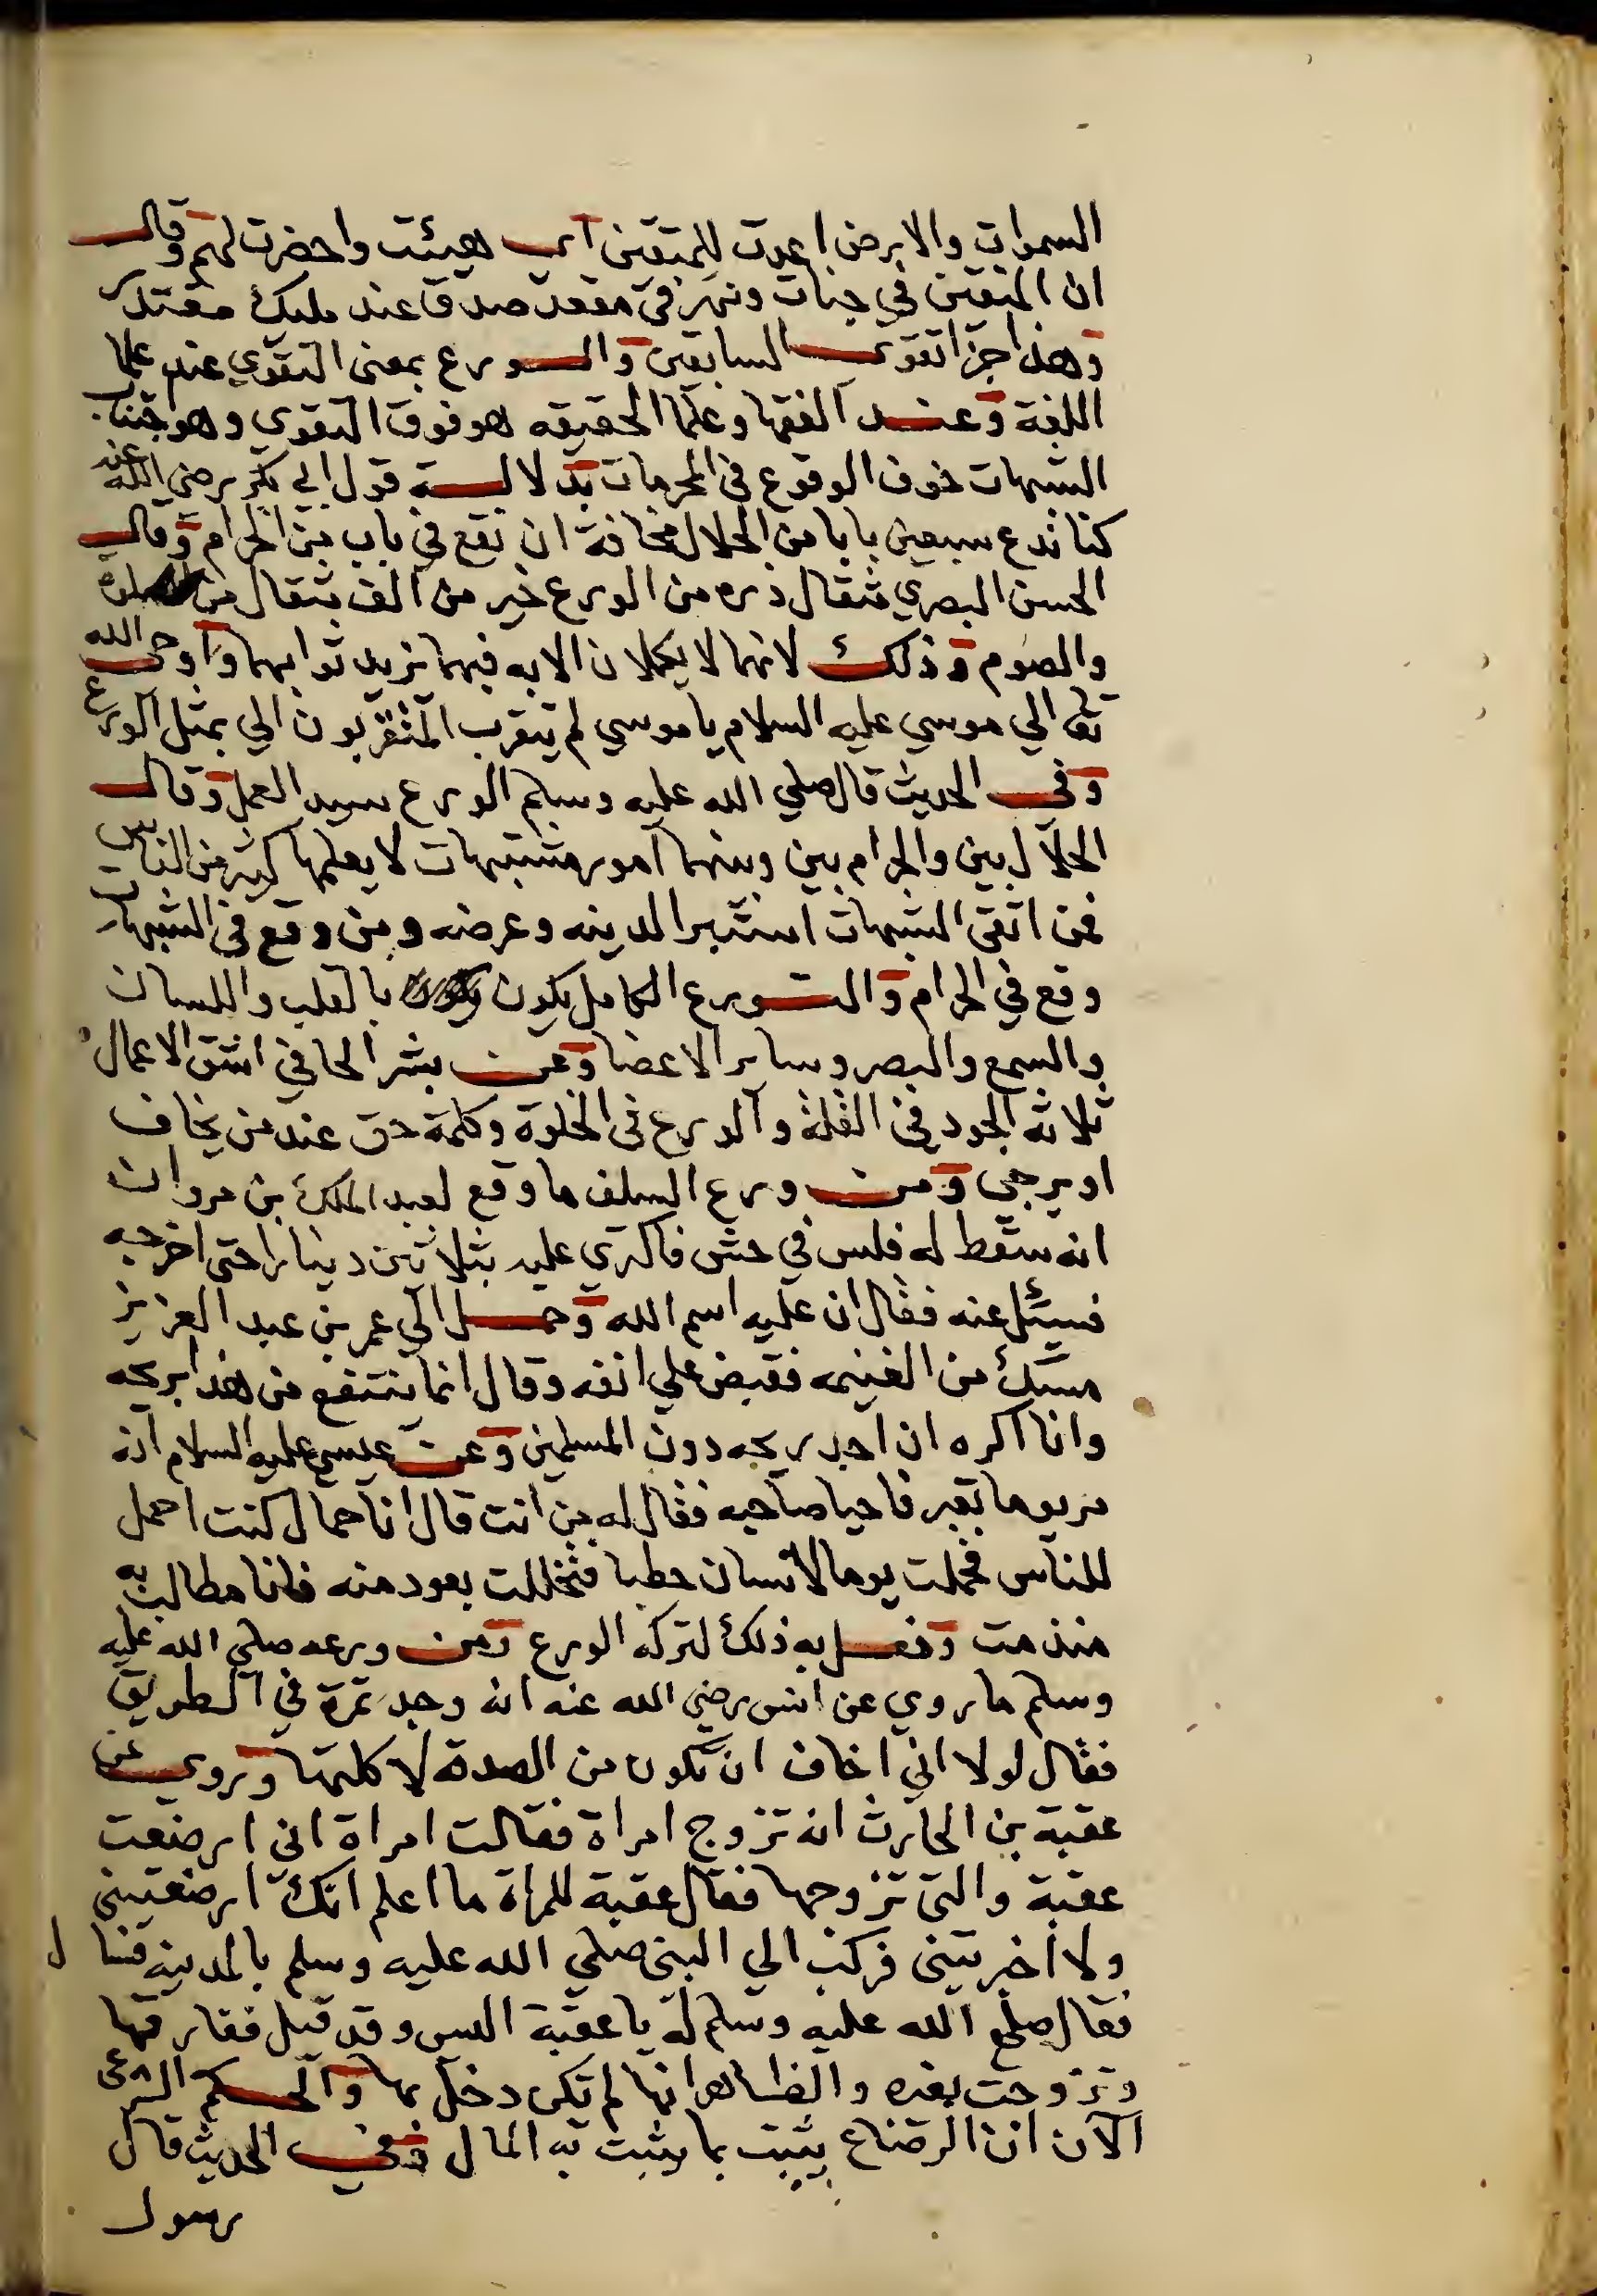 السموات والارض اعدت للمتقين اي هيئت واحضرت لهم وقال
ان المتقين في جنات ونهر في مقعد صدق عند مليك مقتدر
وهذا جزا تقوي السابقين والورع بمعني التقوي عند علما
اللغة وعند الفقها وعلما الحقيقه هو فوق التقوي وهو اجتناب
الشبهات خوف الوقوع في المحرمات بدلالة قول ابي بكر رضي الله عنه
كنا ندع سبعين بابا من الحلال مخافة ان نقع في باب من الحرام وقال
الحسن البصري مثقال ذره من الورع خير من الف مثقال من الصلوة
والصوم وذلك لانهما لا يكملان الا به فبهما تزيد ثوابهما واوحي الله
تعا الي موسي عليه السلام يا موسي لم يتقرب المتقربون الي بمثل الورع
وفي الحديث قال صلي الله عليه وسلم الورع سيد العمل وقال
الحلال بين والحرام بين وبينهما امور مشتبهات لا يعلمها كثير من الناس
فمن اتقي الشبهات استبرا لدينه وعرضه ومن وقع في الشبهات
وقع في الحرام والورع الكامل يكون بالقلب واللسان
والسمع والبصر وساير الاعضا وعن بشر الحافي اشق الاعمال
ثلاثه الجود في القلة والورع في الخلوة وكلمة حق عند من يخاف
او يرجي ومن ورع السلف ما وقع لعبد الملك بن مروان
انه سقط له فلس في حش فاكتري عليه بثلاثين دينارا حتي اخرجه
فسيئل عنه فقال ان عليه اسم الله وحمل الي عمر بن عبد العزيز
مسك من الغنيمه فقبض علي انفه وقال انما ينتفع من هذا بريحه
وانا اكره ان اجد ريحه دون المسلمين وعن عيسي عليه السلام انه
مر يوما بقبر فاحيا صاحبه فقال له من انت قال انا حمال كنت احمل
للناس فحملت يوما لانسان حطبا فتخللت بعود منه فانا مطالب به
منذ مت وفعل به ذلك لتركه الورع ومن ورعه صلي الله عليه
وسلم ما روي عن انس رضي الله عنه انه وجد تمرة في الطريق
فقال لولا اني اخاف ان تكون من الصدقة لاكلتها وروي عن
عقبة بن الحارث انه تزوج امراة فقالت امراة اني ارضعت
عقبة والتي تزوجها فقال عقبة للمراة ما اعلم انك ارضعتيني
ولا اخبرتيني فركب الي النبي صلي الله عليه وسلم بالمدينه فسال
فقال صلي الله عليه وسلم له يا عقبة اليس وقد قيل ففارقها
وتزوجت بغيره والظاهر انها لم تكن دخل بها والحكم الشرعي
الان ان الرضاع يثبت بما يثبت به المال وفي الحديث قال
رسول